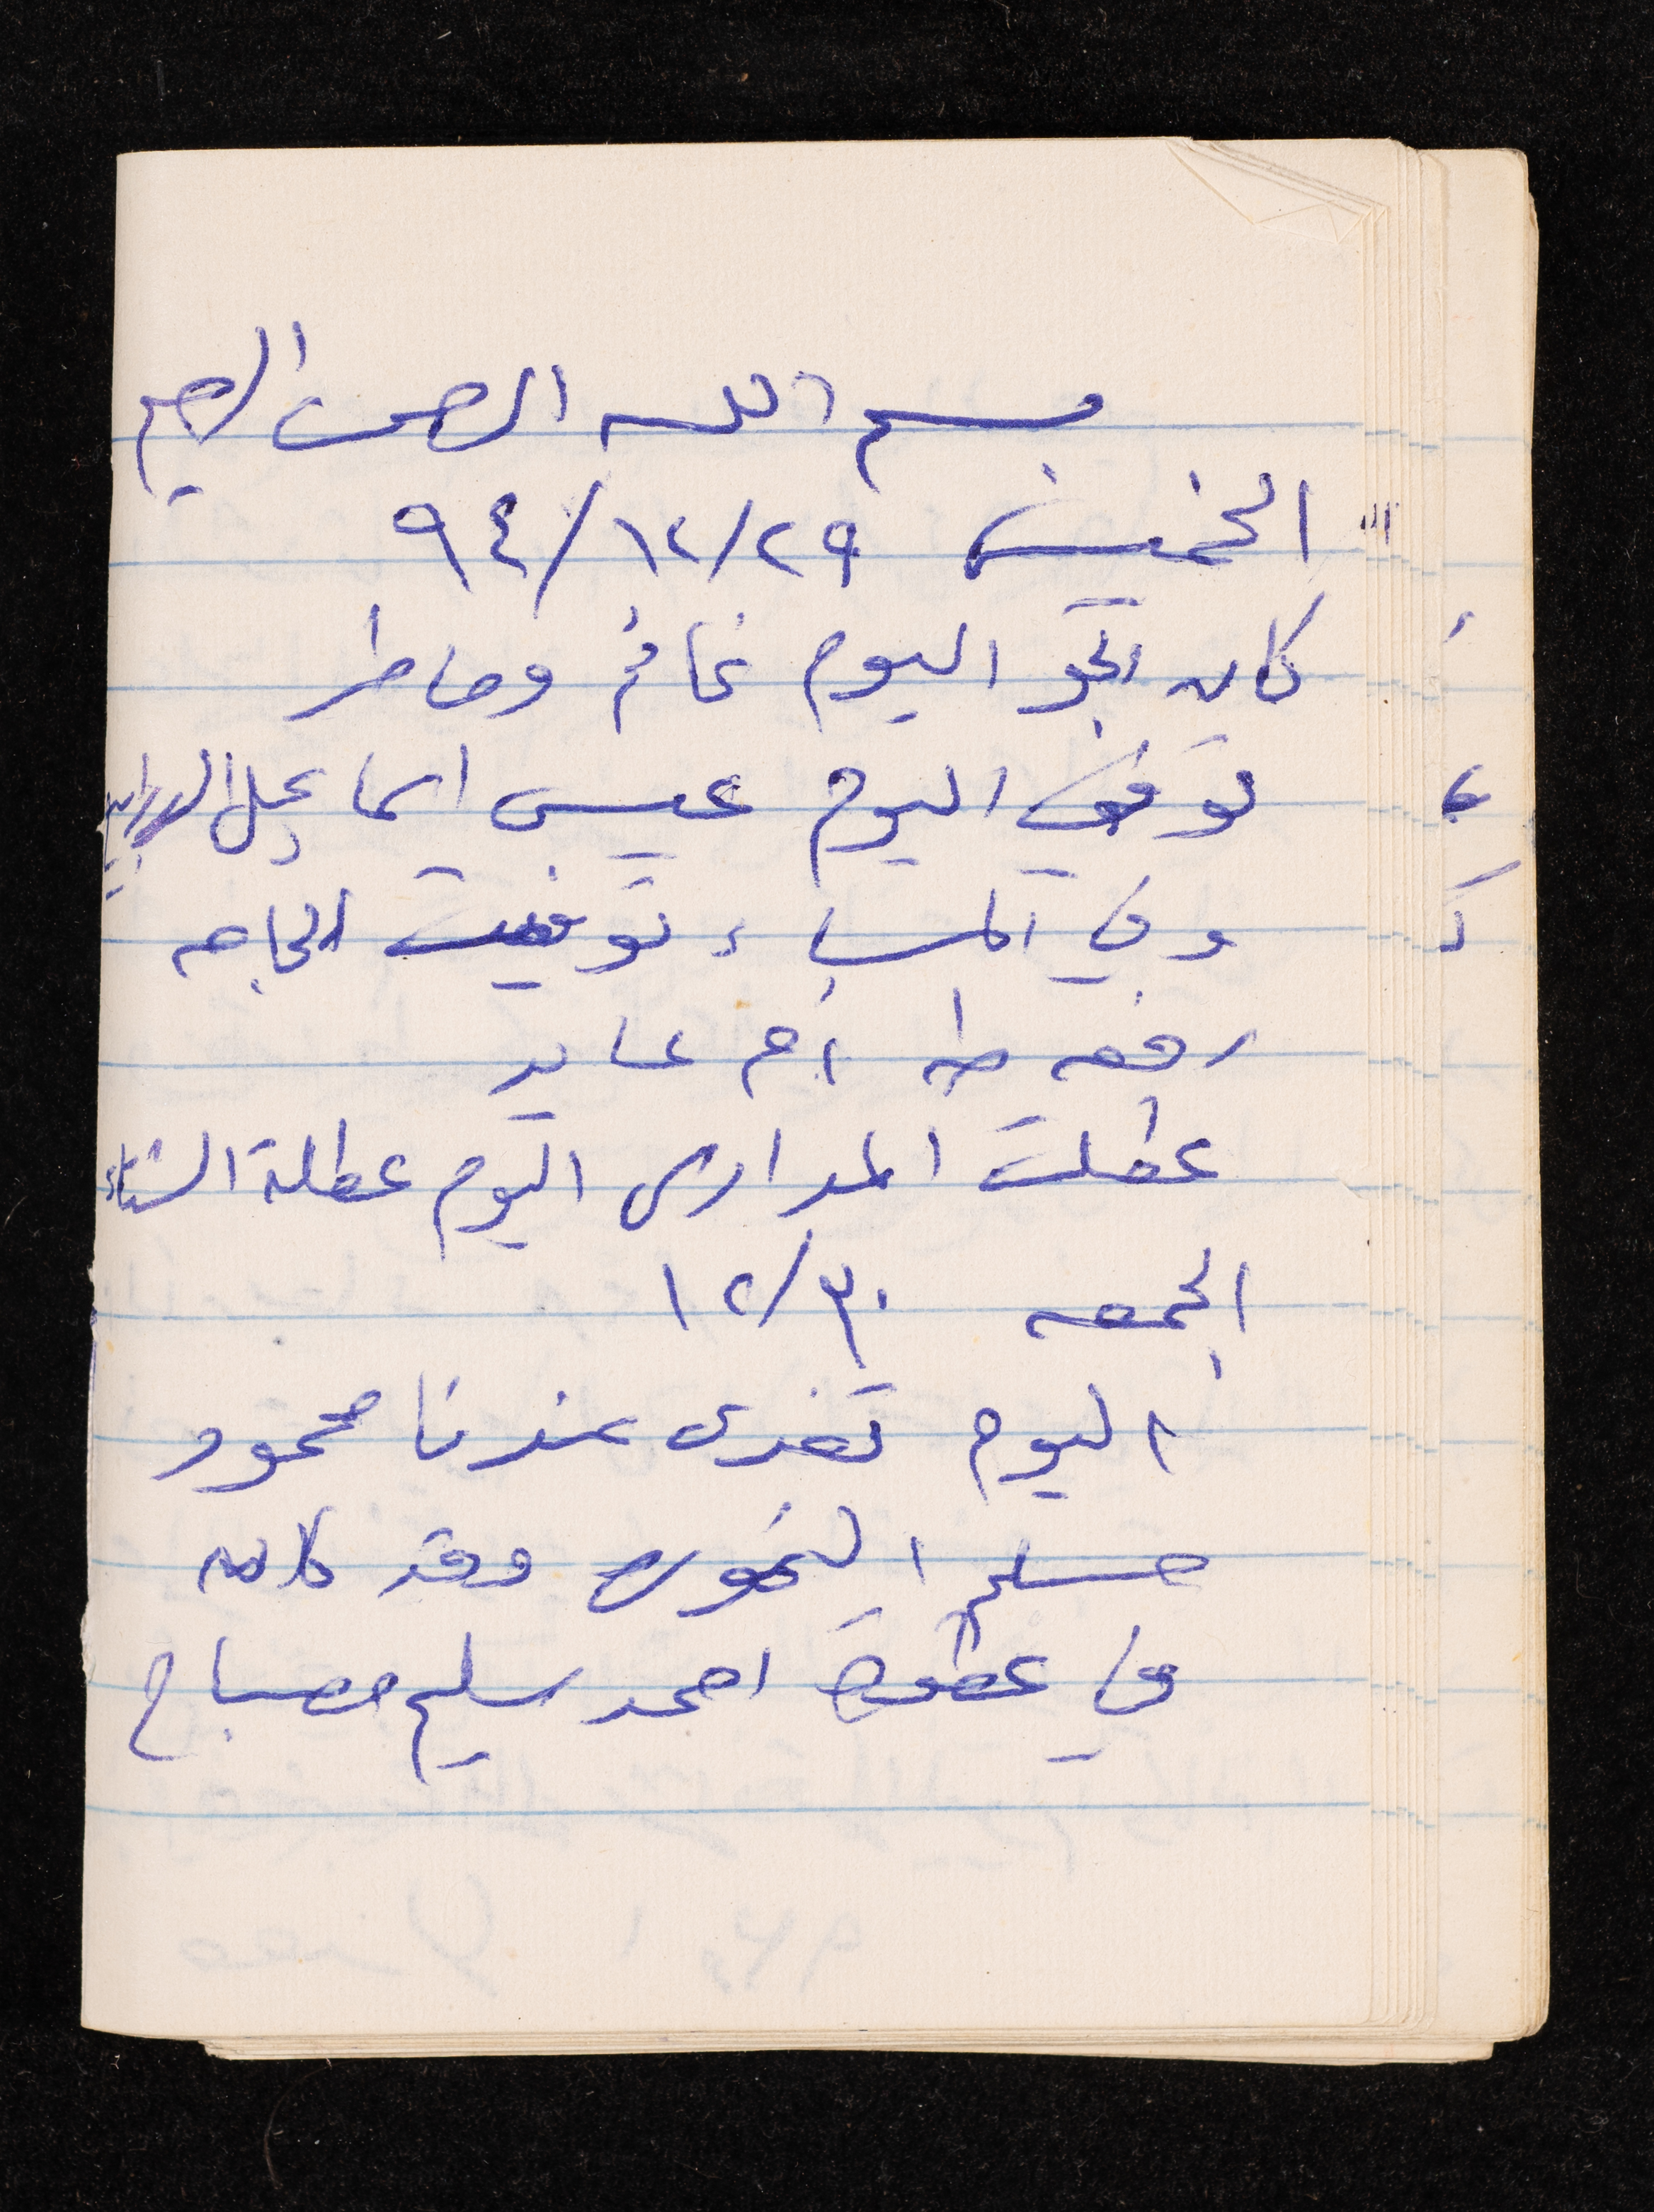 بسم الله الرحمن الرحيم
الخميس ٢٩/١٢/٩٤
كان الجو اليوم غائم وماطر
توفي اليوم عيسى اسماعيل
وفي المساء توفيت الحاجه
رفقه طه ام عايد
عطلت المدارس اليوم عطلة الشتاء
الجمعه ٣٠/١٢
اليوم تغدى عندنا محمود
مسلم وقد كان
في عطوة احمد سليم مصباح